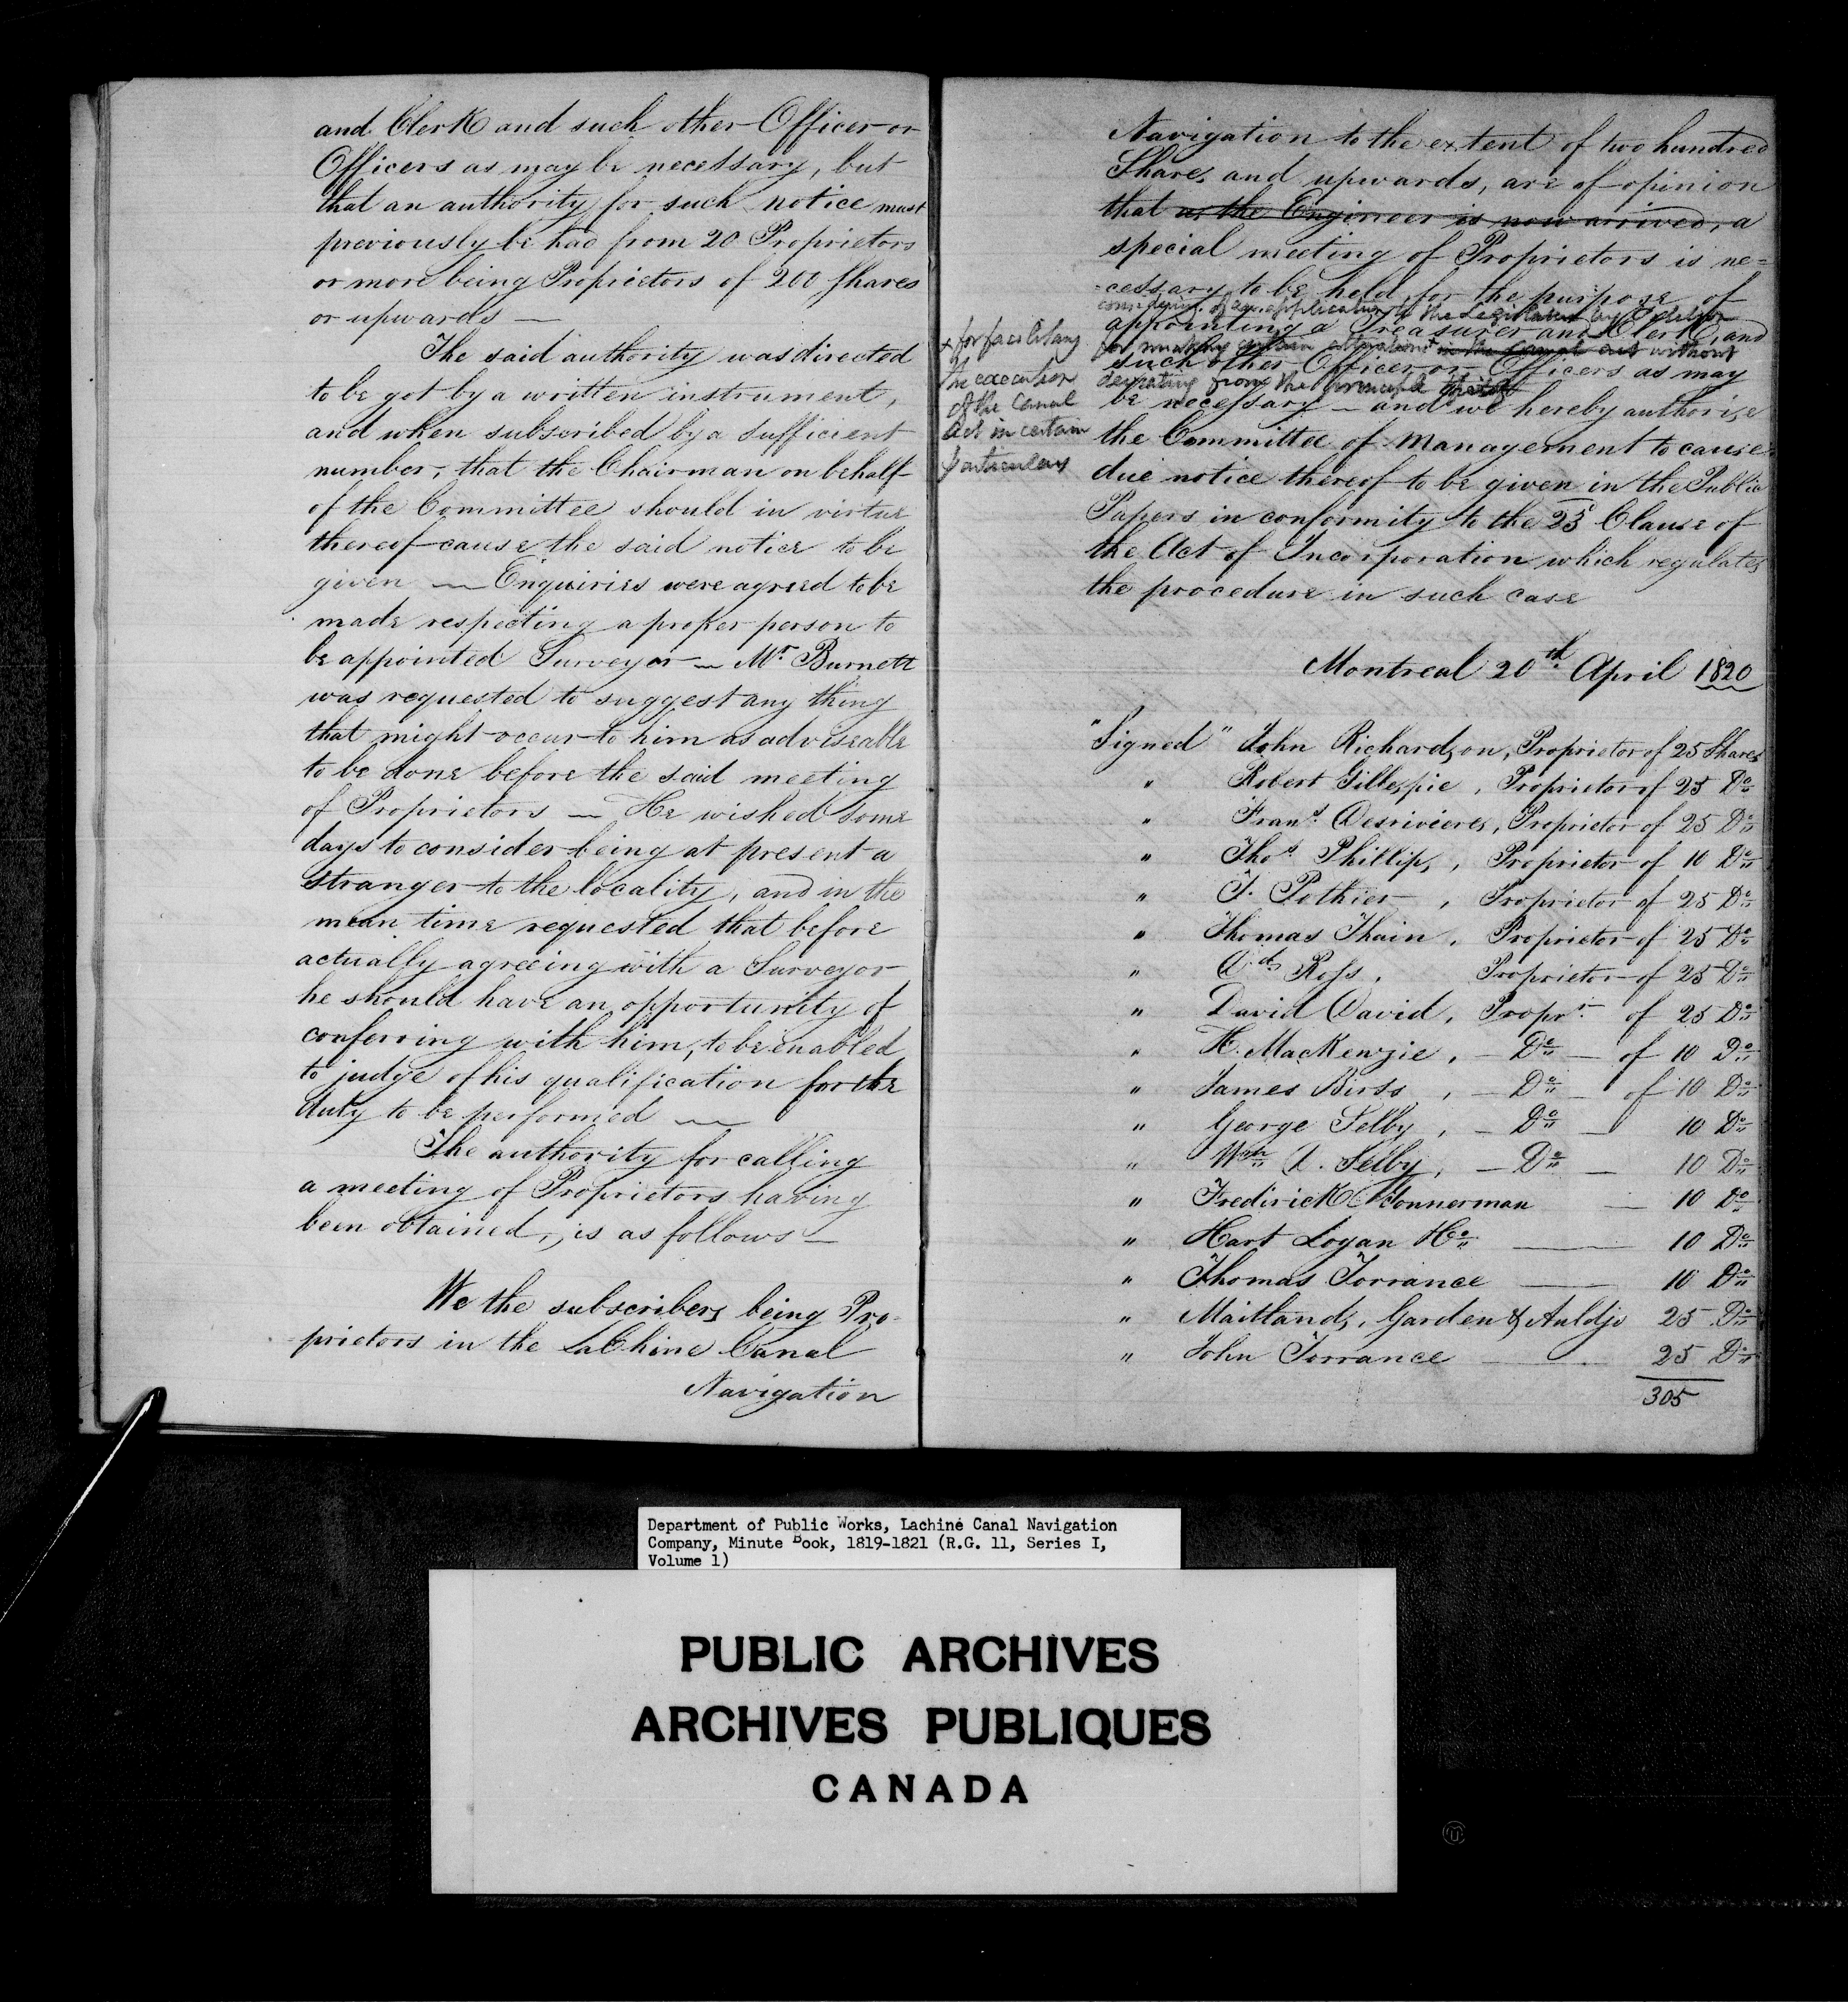 and Clerk and such other Officer or
Officers as may be necessary, but
that an authority for such notice must
previously be had from 20 Proprietors
or more being Proprietors of 200 Shares
or upwards —
The said authority was directed
to be got by a written instrument,
and when subscribed by a sufficient
number, that the Chairman on behalf
of the Committee should in virtue
thereof cause the said notice to be
given — Enquiries were agreed to be
made respecting a proper person to
be appointed Surveyor — Mr. Burnett
was requested to suggest any thing
that might occur to him as adviseable
to be done before the said meeting
of Proprietors — He wished some
days to consider being at present a
stranger to the locality, and in the
mean time requested that before
actually agreeing with a Surveyor
he should have an opportunity of
conferring with him, to be enabled
to judge of his qualification for the
duty to be performed —
The authority for calling
a meeting of Proprietors having
been obtained, is as follows —
We the subscribers being Pro-
prietors in the LaChine Canal
Navigation
Navigation to the extent of two hundred
Shares and upwards, are of opinion
that as the Engineer is now arrived, a
special meeting of Proprietors is ne=
=cessary to be held for the purpose of
considering of an application to the Legislature
appointing a Treasurer and Clerk, and
for making certain alterations + in the Canal act without
such other Officer or Officers as may
deviating from the principle thereof
be necessary — and we hereby authorise
+ for facilitating
the execution
of the Canal
Act in certain
particulars
the Committee of Management to cause
due notice thereof to be given in the Public
Papers in conformity to the 25 Clause of
the Act of Incorporation which regulates
the procedure in such case
Montreal 20th April 1820
"Signed" John Richardson, Proprietor of 25 Shares
" Robert Gillespie, Proprietor of 25 Do
" Frans. Desrivieres, Proprietor of 25 Do
" Thos. Phillips, Proprietor of 10 Do
" T. Pothier, Proprietor of 25 Do
" Thomas Thain, Proprietor of 25 Do
" Dd. Ross, Proprietor of 25 Do
" David David, Propr. of 25 Do
" H. MacKenzie, — Do — of 10 Do
" James Birss, — Do — of 10 Do
" George Selby, — Do — 10 Do
" Wm A. Selby, — Do — 10 Do
" Frederick Nonnerman — 10 Do
" Hart Logan & Co — 10 Do
" Thomas Torrance — 10 Do
" Maitland, Garden & Auldjo 25 Do
" John Torrance — 25 Do
305
Department of Public Works, Lachine Canal Navigation
Company, Minute Book, 1819-1821 (R.G. 11, Series I,
Volume 1)
PUBLIC ARCHIVES
ARCHIVES PUBLIQUES
CANADA